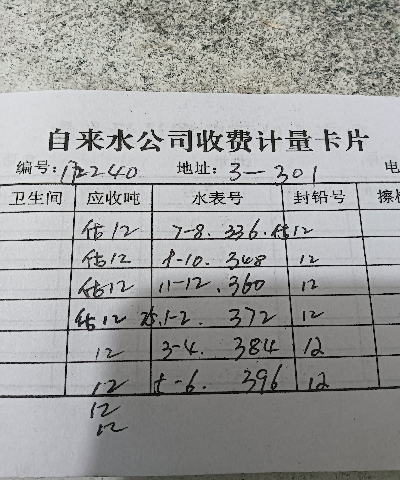 自来水公司收费计量卡片
编号:12240 地址:3-301 电
卫生间 应收吨 水表号 封铅号 擦
估12 7-8. 336. 估12
估12 9-10. 348 12
估12 11-12. 360 12
估12 25.1-2 372 12
12 3-4. 384 12
12 5-6. 396 12
12
12